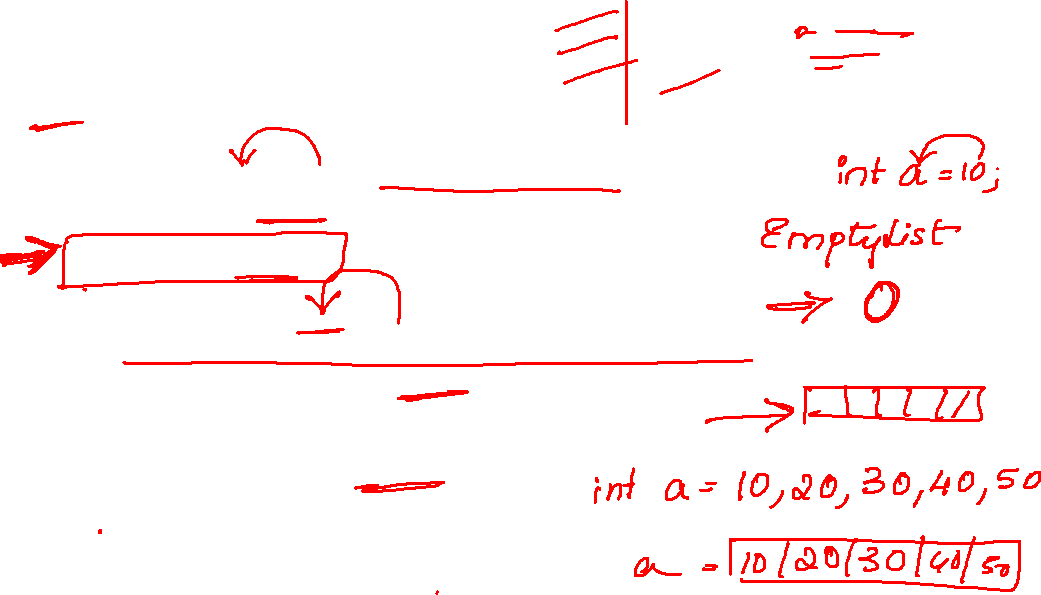 a
int a = 10;
Empty List
0
int a = 10, 20, 30, 40, 50
a = 10 20 30 40 50